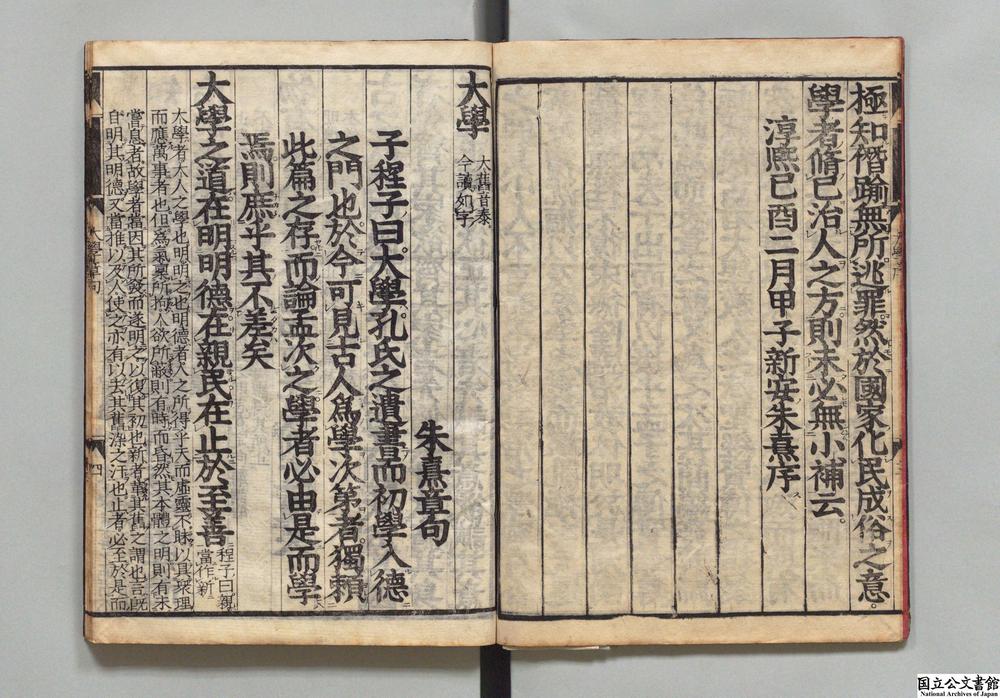 極知僭踰無所逃罪然於國家化民成俗之意。
學者脩已治人之方則未必無小補云。
淳熙已酉二月甲子新安朱熹序
大學
大舊音泰
今讀如字
朱熹章句
子程子曰。大學。孔氏之遺書而初學入德
之門也於今可見古人爲學次第者。獨頼
此篇之存。而論孟次之學者必由是而學
焉則庶乎其不差矣
大學之道。在明明德。在親民。在止於至善
程子曰親
當作新
大學者大人之學也明明之也明德者人之所得乎天而虛靈不昧以具衆理
而應萬事者也但爲氣稟所拘人欲所蔽則有時而昏然其本體之明則有未
嘗息者故學者當因其所發而遂明之以復其初也新者革其舊之謂也言既
自明其明德又當推以及人使之亦有以去其舊染之汙也止者必至於是而
四
国立公文書館
National Archives of Japan